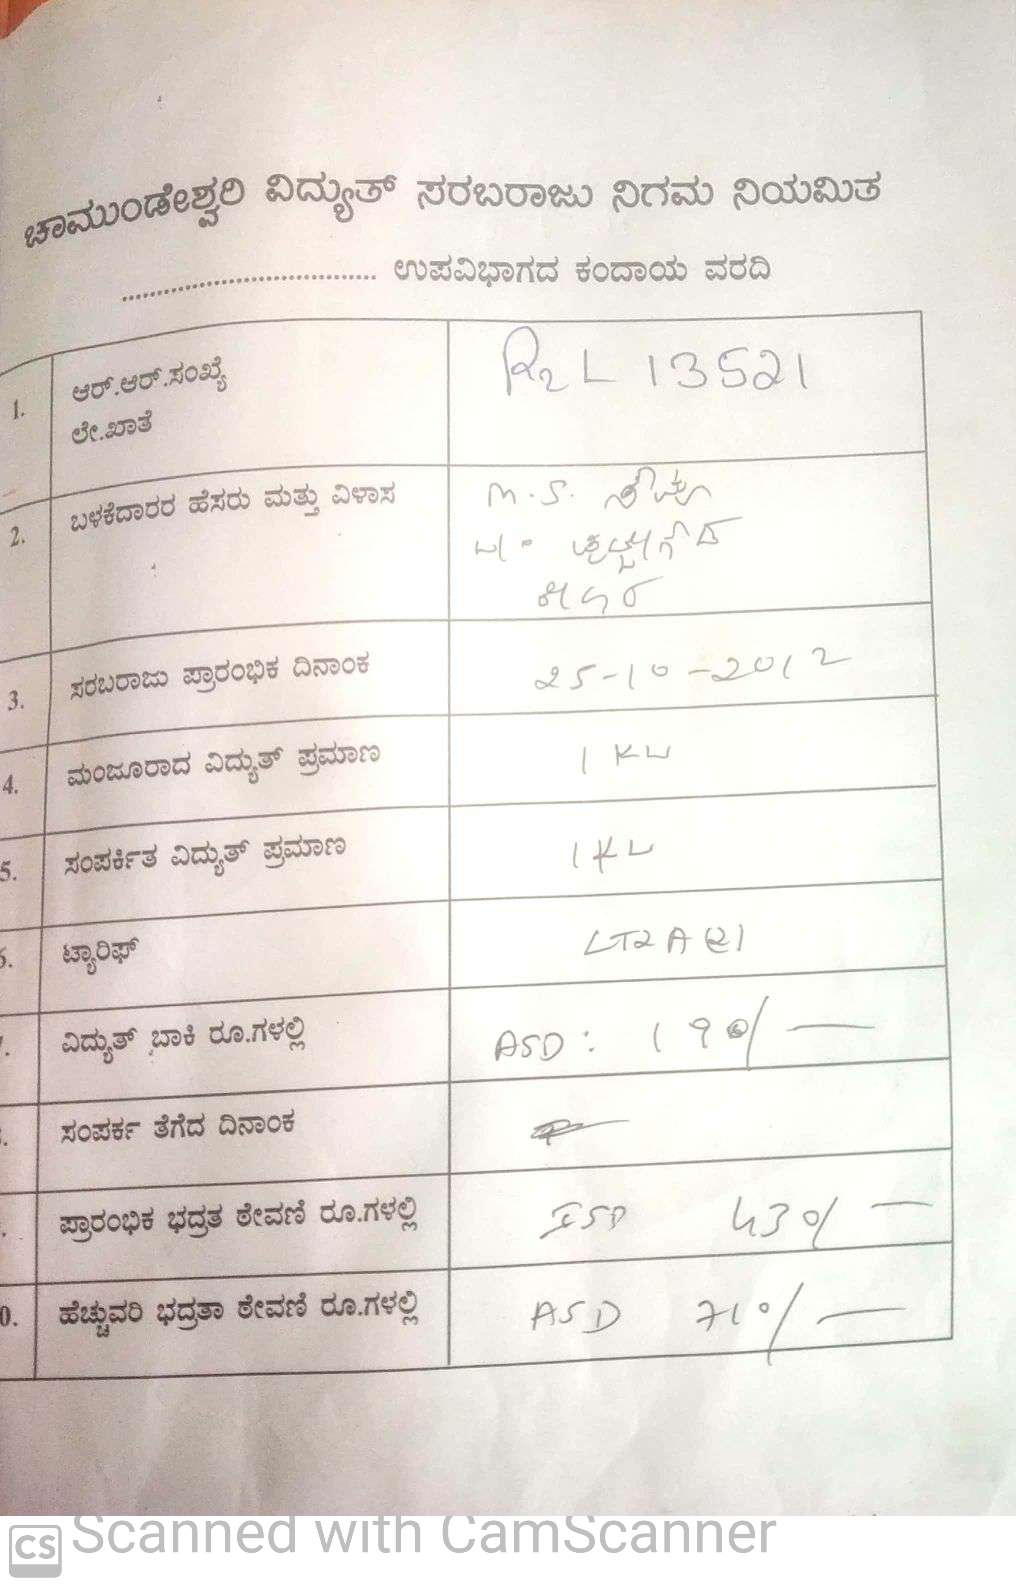 ಚಾಮುಂಡೇಶ್ವರಿ ವಿದ್ಯುತ್ ಸರಬರಾಜು ನಿಗಮ ನಿಯಮಿತ
.................................. ಉಪವಿಭಾಗದ ಕಂದಾಯ ವರದಿ
1. ಆರ್.ಆರ್.ಸಂಖ್ಯೆ R2 L 13521
ಲೇ.ಖಾತೆ
2. ಬಳಕೆದಾರರ ಹೆಸರು ಮತ್ತು ವಿಳಾಸ M.S.
3. ಸರಬರಾಜು ಪ್ರಾರಂಭಿಕ ದಿನಾಂಕ 25-10-2012
4. ಮಂಜೂರಾದ ವಿದ್ಯುತ್ ಪ್ರಮಾಣ 1 KW
5. ಸಂಪರ್ಕಿತ ವಿದ್ಯುತ್ ಪ್ರಮಾಣ 1 KW
. ಟ್ಯಾರಿಫ್ LT2A
. ವಿದ್ಯುತ್ ಬಾಕಿ ರೂ.ಗಳಲ್ಲಿ ASD: 190/-
. ಸಂಪರ್ಕ ತೆಗೆದ ದಿನಾಂಕ
. ಪ್ರಾರಂಭಿಕ ಭದ್ರತ ಠೇವಣಿ ರೂ.ಗಳಲ್ಲಿ ISD 430/-
0. ಹೆಚ್ಚುವರಿ ಭದ್ರತಾ ಠೇವಣಿ ರೂ.ಗಳಲ್ಲಿ ASD 710/-
CS Scanned with CamScanner